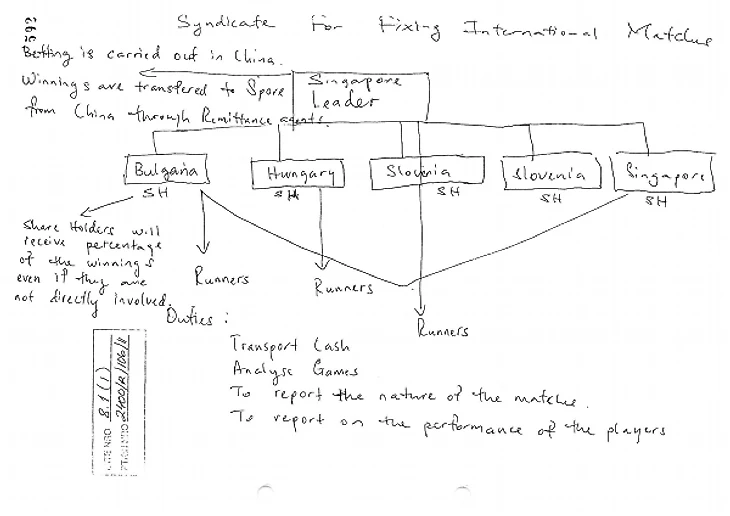 Syndicate For Fixing International Matches
Betting is carried out in China.
Winnings are transfered to Spore
from China through Remittance agents.
Singapore
Leader
Bulgaria
Hungary
Slovinia
Slovenia
Singapore
SH
SH
SH
SH
SH
Share Holders will
receive percentage
of the winnings
even if they are
not directly involved.
Runners
Runners
Runners
Duties :
Transport Cash
Analyse Games
To report the nature of the matches.
To report on the performance of the players
8.1 (1)
2400/R/106/11